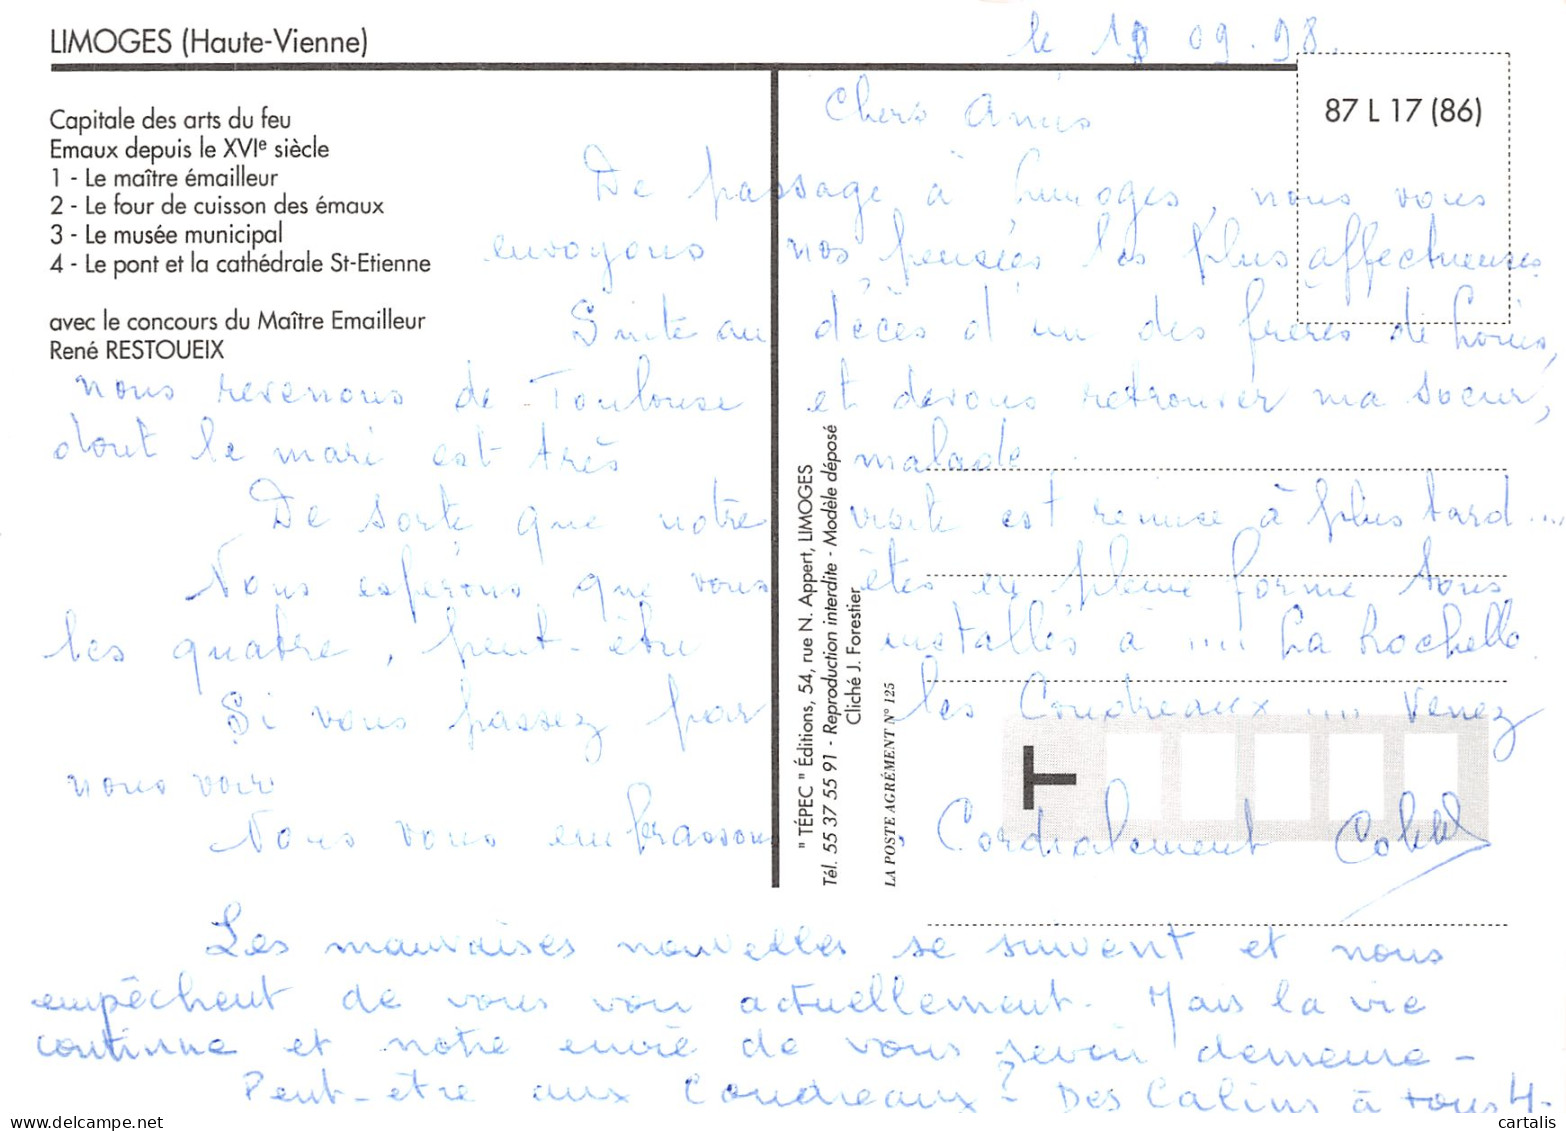 LIMOGES (Haute-Vienne)
le 1 09.98.
Capitale des arts du feu
Emaux depuis le XVIe siècle
1 - Le maître émailleur
2 - Le four de cuisson des émaux
3 - Le musée municipal
4 - Le pont et la cathédrale St-Etienne
avec le concours du Maître Emailleur
René RESTOUEIX
87 L 17 (86)
Chers Amis
De passage à Limoges, nous vous
envoyons nos pensées les plus affectueuses
Suite au décès d'un des frères de Louis,
nous revenons de Toulouse et devons retrouver ma soeur,
dont le mari est très malade.
De sorte que notre visite est remise à plus tard....
Nous espérons que vous êtes en pleine forme tous
les quatre, peut-être installés à .... La Rochelle
Si vous passez par les Coudreaux .... Venez
nous voir
Nous vous embrassons. Cordialement
Les mauvaises nouvelles se suivent et nous
empêchent de vous voir actuellement. Mais la vie
continue et notre envie de vous revoir demeure -
Peut-être aux Coudreaux? Des Calins à tous 4.
" TÉPEC " Éditions, 54, rue N. Appert, LIMOGES
Tél. 55 37 55 91 - Reproduction interdite - Modèle déposé
Cliché J. Forestier
LA POSTE AGRÉMENT N° 125
T
cartalis
www.delcampe.net